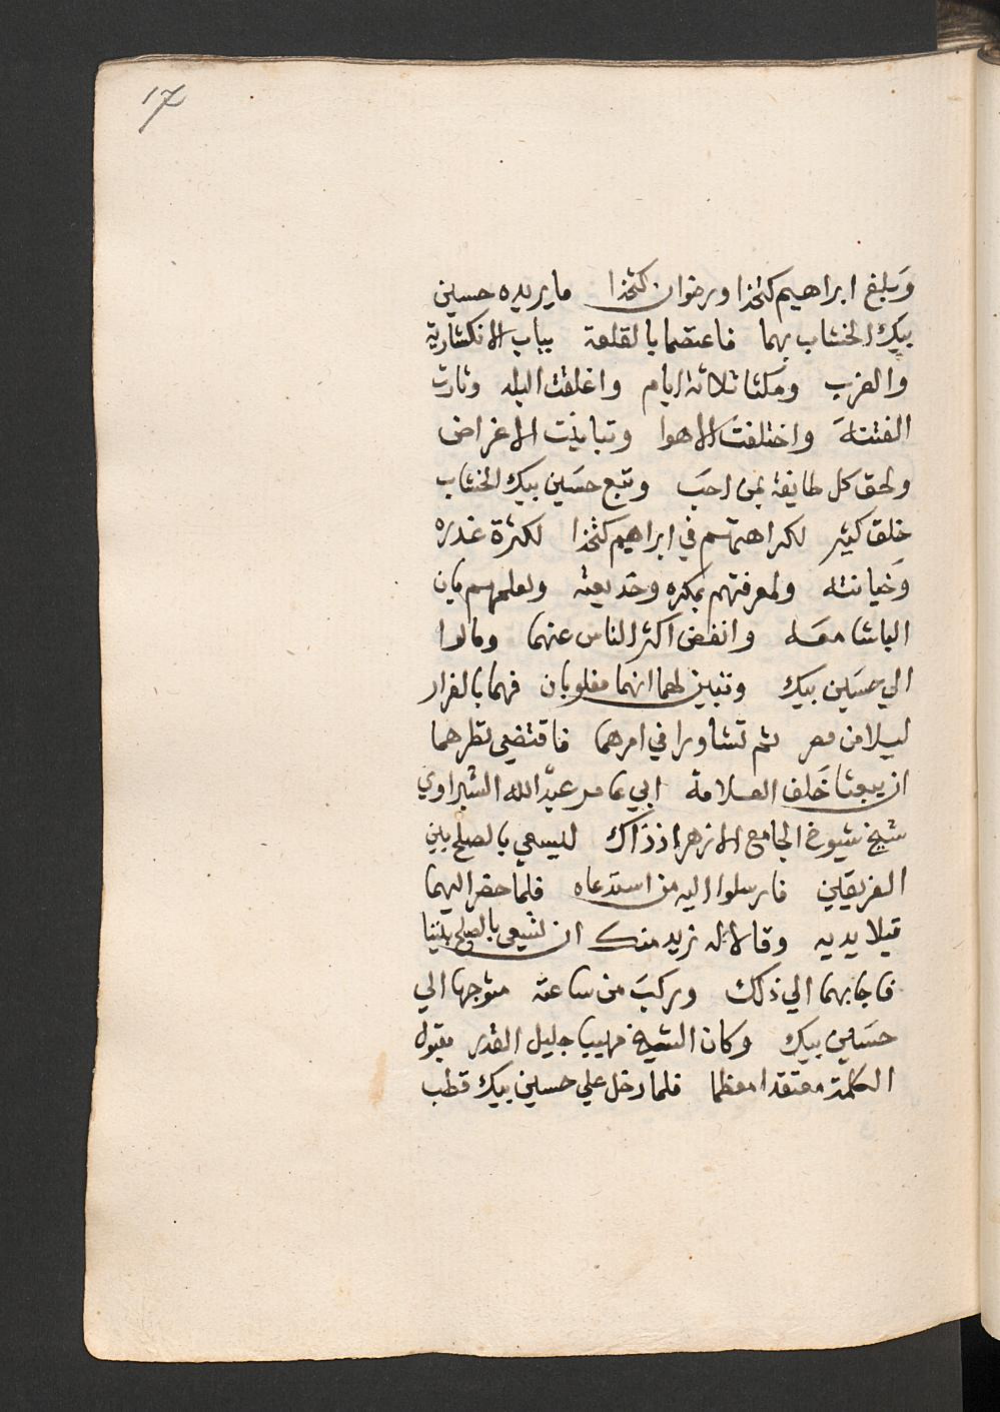 17
وَبلغ ابراهيم كتخدا ورضوان كتخدا ما يريده حسين
بيك الخشاب بهما فاعتصما بالقلعة بباب الانكشارية
والعزب ومكثا ثلاثة ايام واغلقت البلد وثارت
الفتنة واختلفت الاهوا وتباينت الاغراض
ولحق كل طايفة بمن احب وتبع حسَين بيك الخشاب
خلق كثير لكراهتهم في ابراهيم كتخدا لكثرة غدره
وَخيانته ولمعرفتهم بمكره وخديعته ولعلمهم بان
الباشا معَه وانفض اكثر الناس عنهما ومالوا
الي حسَين بيك وتبين لهما انهما مغلوبان فهما بالفرار
ليلا من مصر ثم تشاورا في امرهما فاقتضي نظرهما
ان يبعثا خَلف العلامة ابي عامر عبد الله الشبراوي
شيخ شيوخ الجامع الازهر اذذاك لليسعي بالصلح بين
الفريقين فارسلوا اليه من استدعاه فلما حضر اليهما
قبلا يديه وقالا له نريد منك ان تسعي بالصلح بيننا
فاجابهما الي ذلك وركبَ من ساعته متوجها الي
حسَين بيك وكان الشيخ مهيبا جليل القدر مقبول
الكلمة معتقدا معظما فلما دخل علي حسين بيك قطب